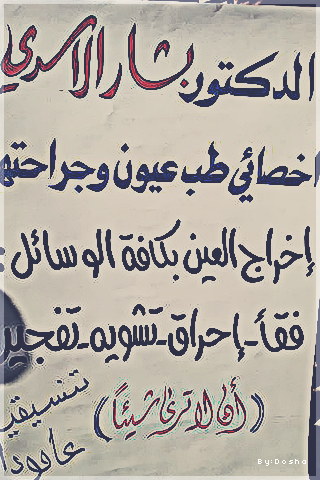 الدكتور بشار الاسدي
اخصائي طب عيون وجراحتها
إخراج العين بكافة الوسائل
فقأ_إحراق_تشويه_تفجير
(أن لا ترى شيئاً)
تنسيقية
عامودا
By:Dosha